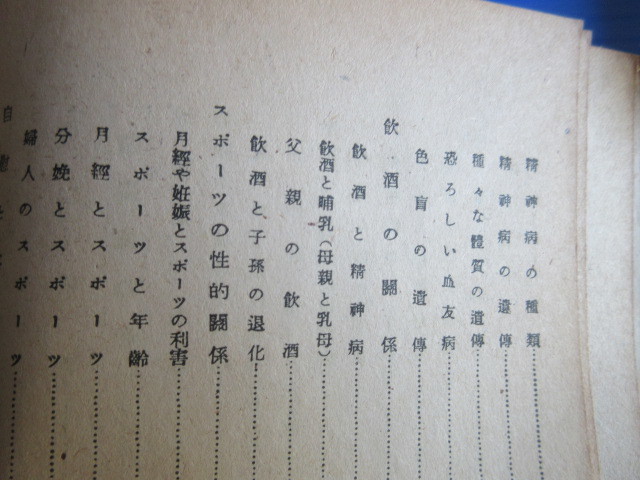 精神病の種類
精神病の遺傳
種々な體質の遺傳
恐ろしい血友病
色盲の遺傳
飲酒の關係
飲酒と精神病
飲酒と哺乳(母親と乳母)
父親の飲酒
飲酒と子孫の退化
スポーツの性的關係
月經や姙娠とスポーツの利害
スポーツと年齡
月經とスポーツ
分娩とスポーツ
婦人のスポーツ
自慰と